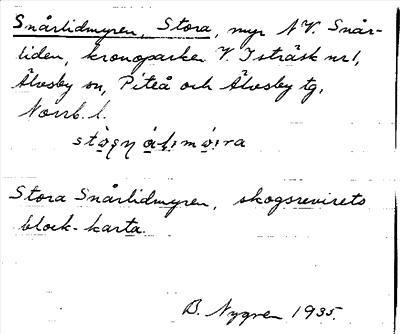 Snårlidmyren, Stora, myr NV. Snår-
liden, kronoparken V. Isträsk nr 1,
Älvsby sn, Piteå och Älvsby tg,
Norrb. l.
Stora Snårlidmyren, skogsrevirets
block-karta.
B. Nygren 1935.